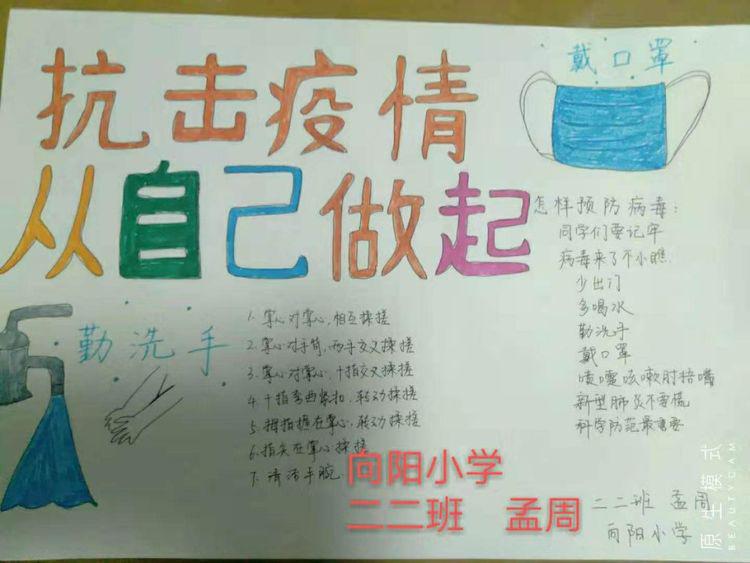 抗击疫情
从自己做起
戴口罩
怎样预防病毒：
同学们要记牢
病毒来了不小瞧
少出门
多喝水
勤洗手
戴口罩
喷嚏咳嗽肘捂嘴
新型肺炎不要慌
科学防范最重要
勤洗手
1. 掌心对掌心，相互揉搓
2. 掌心对手背，两手交叉揉搓
3. 掌心对掌心，十指交叉揉搓
4. 十指弯曲紧扣，转动揉搓
5. 拇指握在掌心，转动揉搓
6. 指尖在掌心揉搓
7. 清洁手腕
向阳小学
二二班 孟周
二二班 孟周
向阳小学
原生模式
BEAUTYCAM